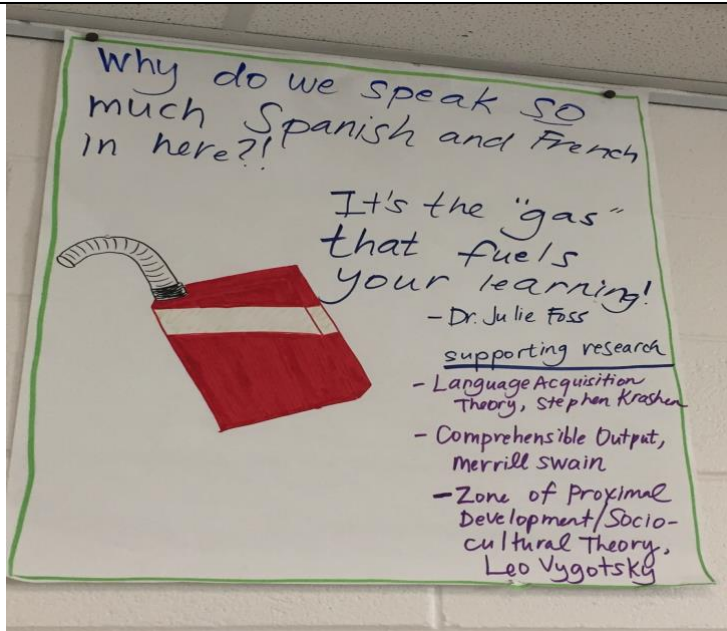 Why do we speak so
much Spanish and French
in here?!
It's the "gas"
that fuels
your learning!
- Dr. Julie Foss
supporting research
- Language Acquisition
Theory, Stephen Krashen
- Comprehensible Output,
merrill swain
- Zone of Proximal
Development/Socio-
cultural Theory,
Leo Vygotsky